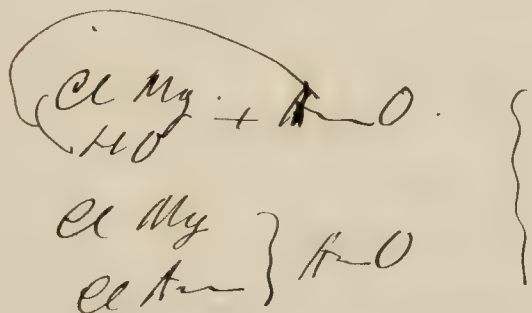 Cl Mg + Am O.
HO
Cl Mg
Cl Am } Am O